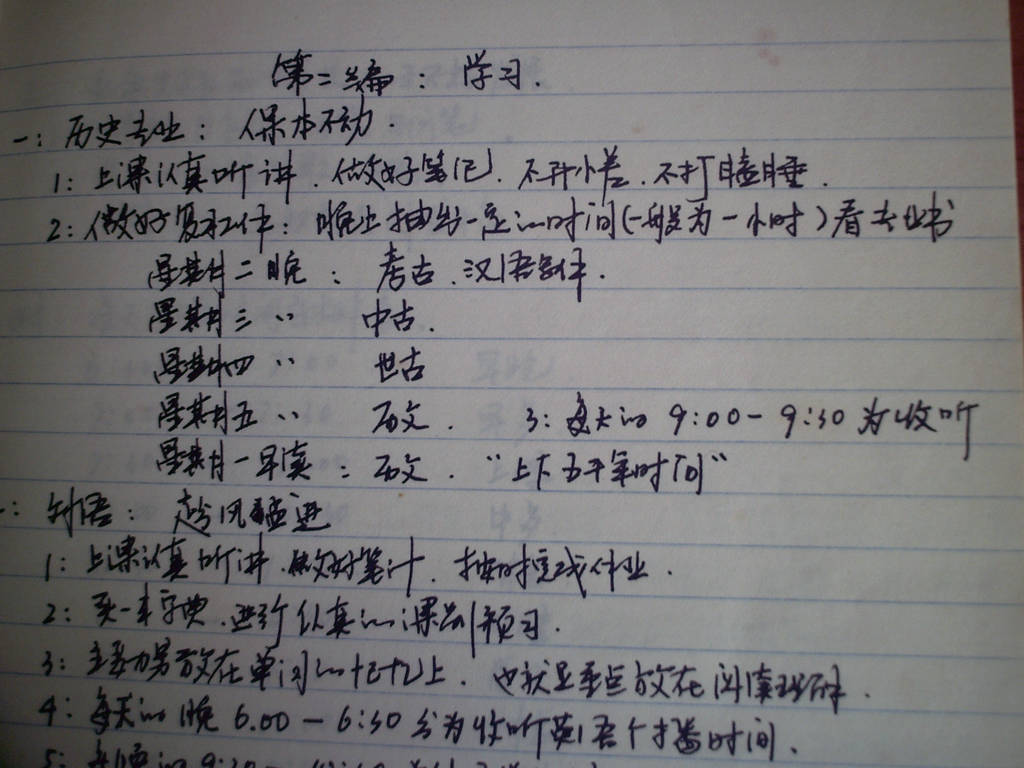 第二编：学习.
一：历史专业：保本不动.
1：上课认真听讲.做好笔记.不开小差.不打瞌睡.
2：做好复习工作：晚上抽出一定的时间(一般为一小时)看专业书
星期二晚：考古.汉语写作.
星期三〃 中古.
星期四〃 世古
星期五〃 历文. 3：每天的9:00-9:30为收听
星期一早读：历文. “上下五千年时间”
：外语：趁风猛进
1：上课认真听讲.做好笔计.按时完成作业.
2：买一本字典.进行认真的课前预习.
3：主要力量放在单词的记忆上.也就是重点放在阅读理解.
4：每天的晚6.00-6:30分为收听英语个播时间.
5： 9:30-